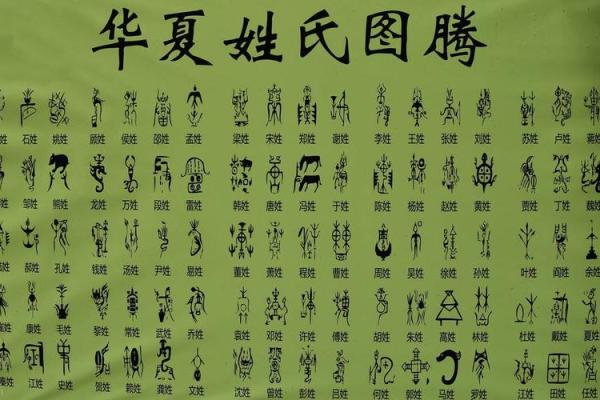 华夏姓氏图腾
姓 石姓 姚姓 顾姓 侯姓 邵姓 孟姓 梁姓 宋姓 郑姓 谢姓 李姓 王姓 张姓 刘姓 苏姓 卢姓 蒋姓
姓 邹姓 熊姓 龙姓 万姓 段姓 雷姓 韩姓 唐姓 冯姓 于姓 陈姓 杨姓 赵姓 黄姓 贾姓 丁姓 魏姓
姓 郝姓 孔姓 钱姓 汤姓 尹姓 易姓 董姓 萧姓 程姓 曹姓 周姓 吴姓 徐姓 孙姓 叶姓 阎姓 余姓
姓 康姓 毛姓 黎姓 常姓 武姓 乔姓 袁姓 邓姓 许姓 傅姓 胡姓 朱姓 高姓 林姓 杜姓 戴姓 夏姓
秦姓 江姓 史姓 贺姓 赖姓 龚姓 文姓 沈姓 曾姓 彭姓 吕姓 何姓 郭姓 马姓 罗姓 汪姓 田姓 任姓